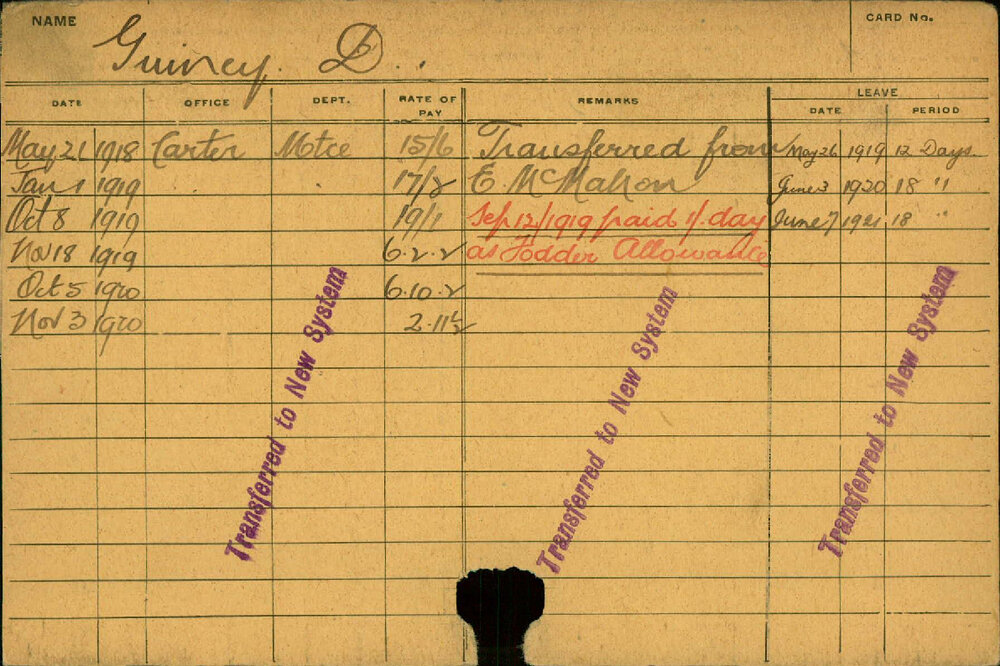 NAME Guiney. D.
CARD No.
DATE OFFICE DEPT. RATE OF PAY REMARKS LEAVE
DATE PERIOD
May 21 1918 Carter Mtce 15/6 Transferred from May 26 1919 12 Days.
Jan 1 1919 E. McMahon June 3 1920 18 "
Oct 8 1919 19/1 Sep 12/1919 paid 1/- day June 7 1921 18 "
Nov 18 1919 6.2.2 as Fodder Allowance
Oct 5 1920 6.10.2
Nov 3 1920
Transferred to New System
Transferred to New System
Transferred to New System